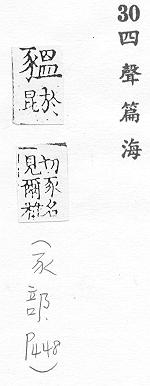 30四聲篇海
豱
於
昆
切豕名
見爾雅
(豕部 P448)